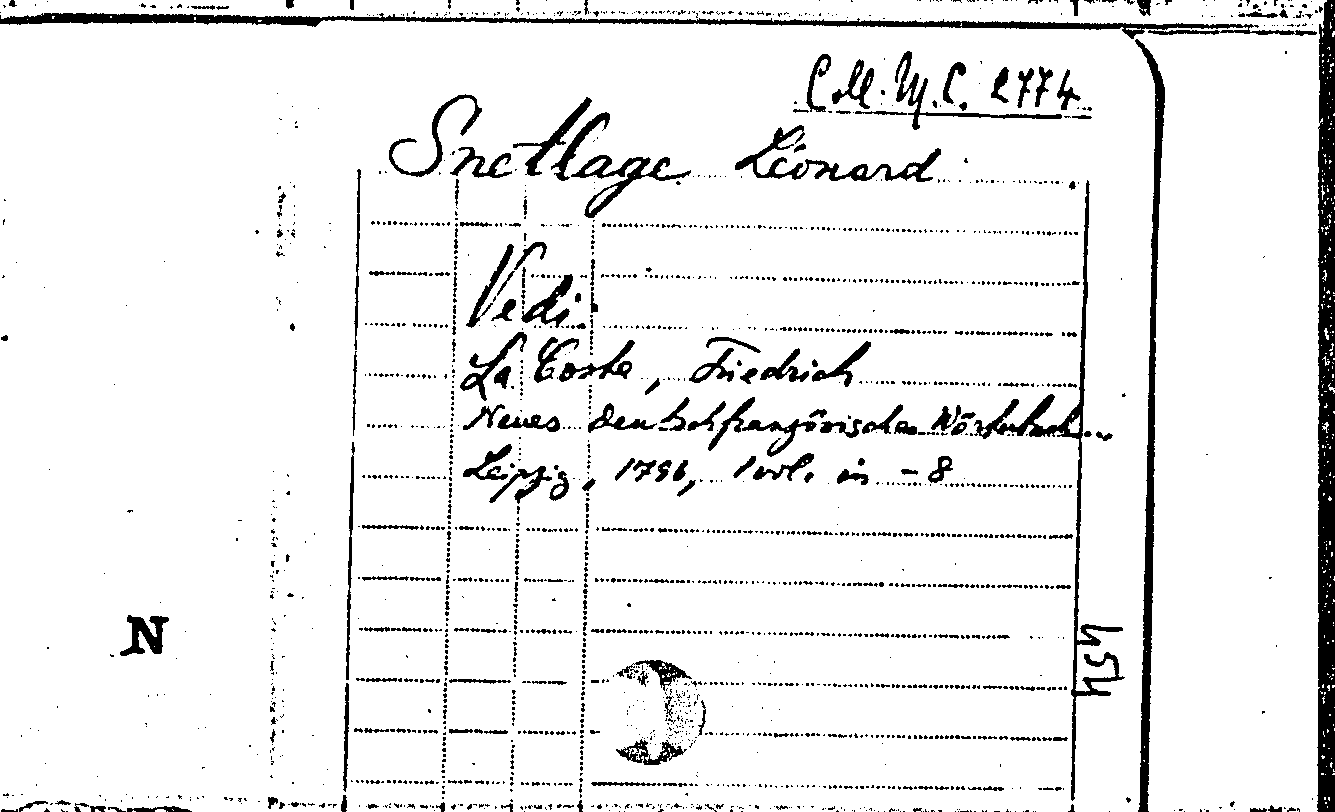 Coll. M.C. 2774
Snetlage Léonard
Vedi:
La Coste, Friedrich
Neues deutschfranzösisches Wörterbuch...
Leipzig, 1796, 1 vol. in -8
N
454